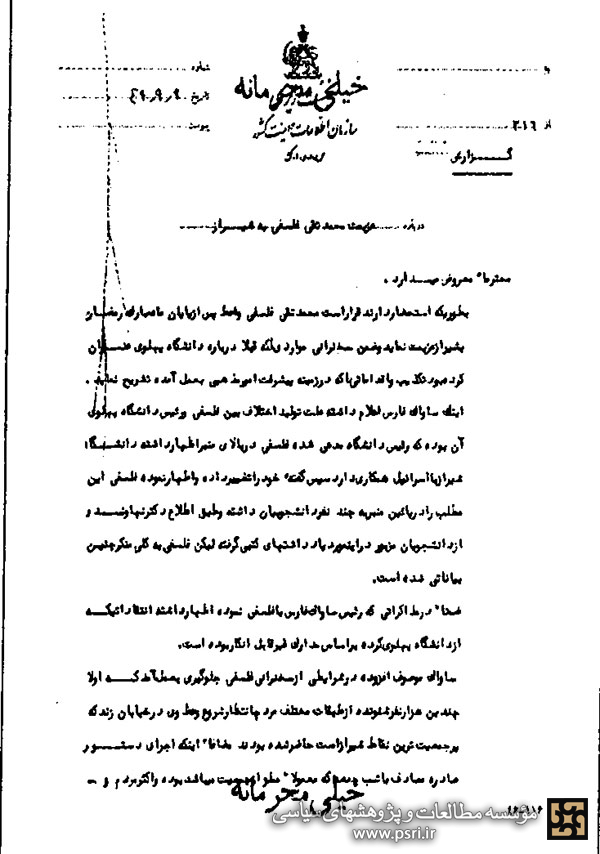 خیلی محرمانه
شماره
به
تاریخ ۴۹٫۹٫۹
سازمان اطلاعات و امنیت کشور
پیوست
از ۳۱۶
گزارش
درباره عزیمت محمد تقی فلسفی به شیراز
محترما" معروض میدارد .
بطوریکه استحضار دارند قرار است محمد تقی فلسفی واعظ پس از پایان ماه مبارک رمضان
بشیراز عزیمت نماید وضمن سخنرانی مواردیکه قبلا درباره دانشگاه پهلوی عنوان
کرده بود تکذیب واقداماتی را که در زمینه پیشرفت امور مذهبی بعمل آمده تشریح نماید .
اینک ساواک فارس اعلام داشته علت تولید اختلاف بین فلسفی ورئیس دانشگاه پهلوی
آن بوده که رئیس دانشگاه مدعی شده فلسفی در بالای منبر اظهار داشته دانشگاه
شیراز با اسرائیل همکاری دارد سپس گفته خود را تغییر داده واظهار نموده فلسفی این
مطلب را در پائین منبر به چند نفر دانشجویان داشته وطبق اطلاع دکتر نهاوندی و
از دانشجویان مزبور در اینمورد یادداشتهای کتبی گرفته لیکن فلسفی به کلی منکر چنین
بیاناتی شده است.
ضمنا" در مذاکراتی که رئیس ساواک فارس با فلسفی نموده اظهار داشته انتقاداتیکه
از دانشگاه پهلوی کرده بر اساس مدارک غیر قابل انکار بوده است.
ساواک موصوف افزوده در شرایطی از سخنرانی فلسفی جلوگیری بعمل آمد که اولا
چندین هزار نفر شنونده از طبقات مختلف مردم در انتظار شروع وعظ وی در خیابان زند که
پر جمعیت ترین نقاط شیراز است حاضر شده بودند مضافا" اینکه اجرای دستور
صادره مصادف با شب جمعه که معمولا" مملو از جمعیت میباشد بوده واکثر مردم و
خیلی محرمانه
موسسه مطالعات و پژوهشهای سیاسی
www.psri.ir